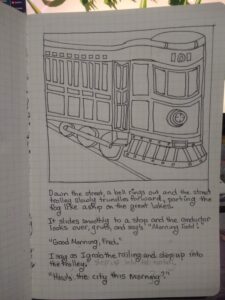 101
Down the street, a bell rings out and the street
trolley slowly trundles forward, parting the
fog like a ship on the great lakes.
It slides smoothly to a stop and the conductor
looks over, gruff, and says "Morning Todd".
"Good Morning, Fred."
I say as I grab the railing and step up into
the trolley.
"How's the city this morning?"